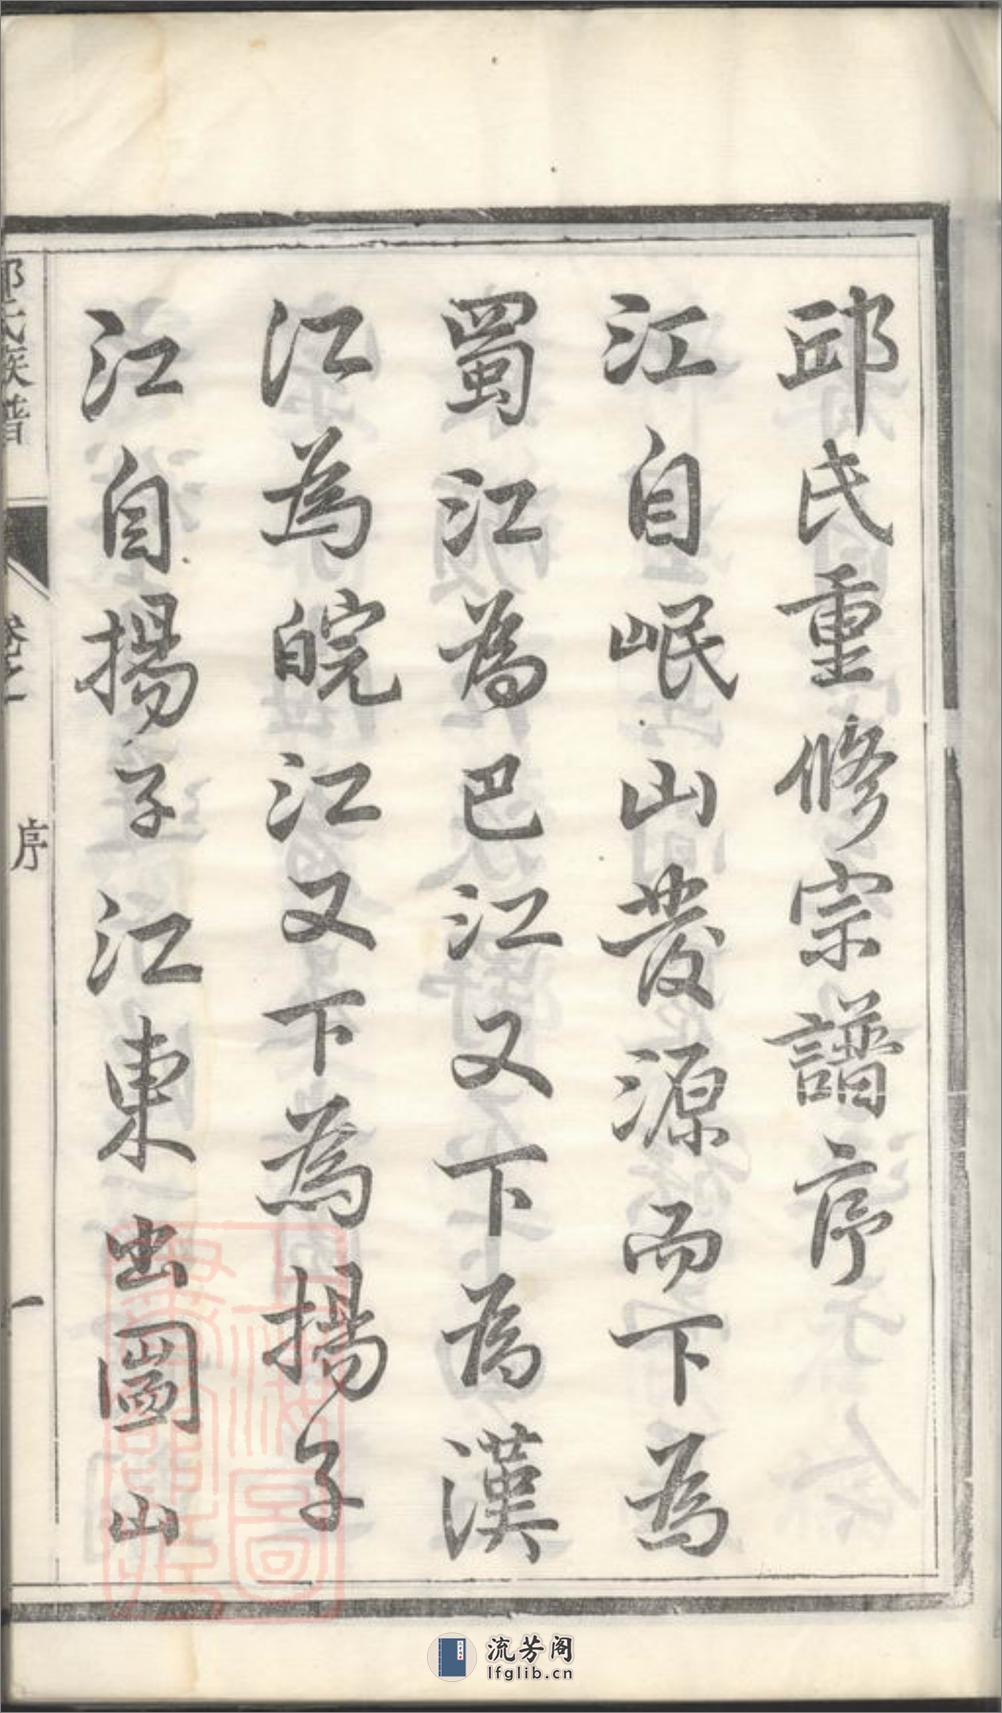 邱氏重修宗譜序
江自岷山發源而下為
蜀江為巴江又下為漢
江為皖江又下為揚子
江自揚子江東出圌山
邱氏族譜
卷之
序
一
流芳阁
lfglib.cn